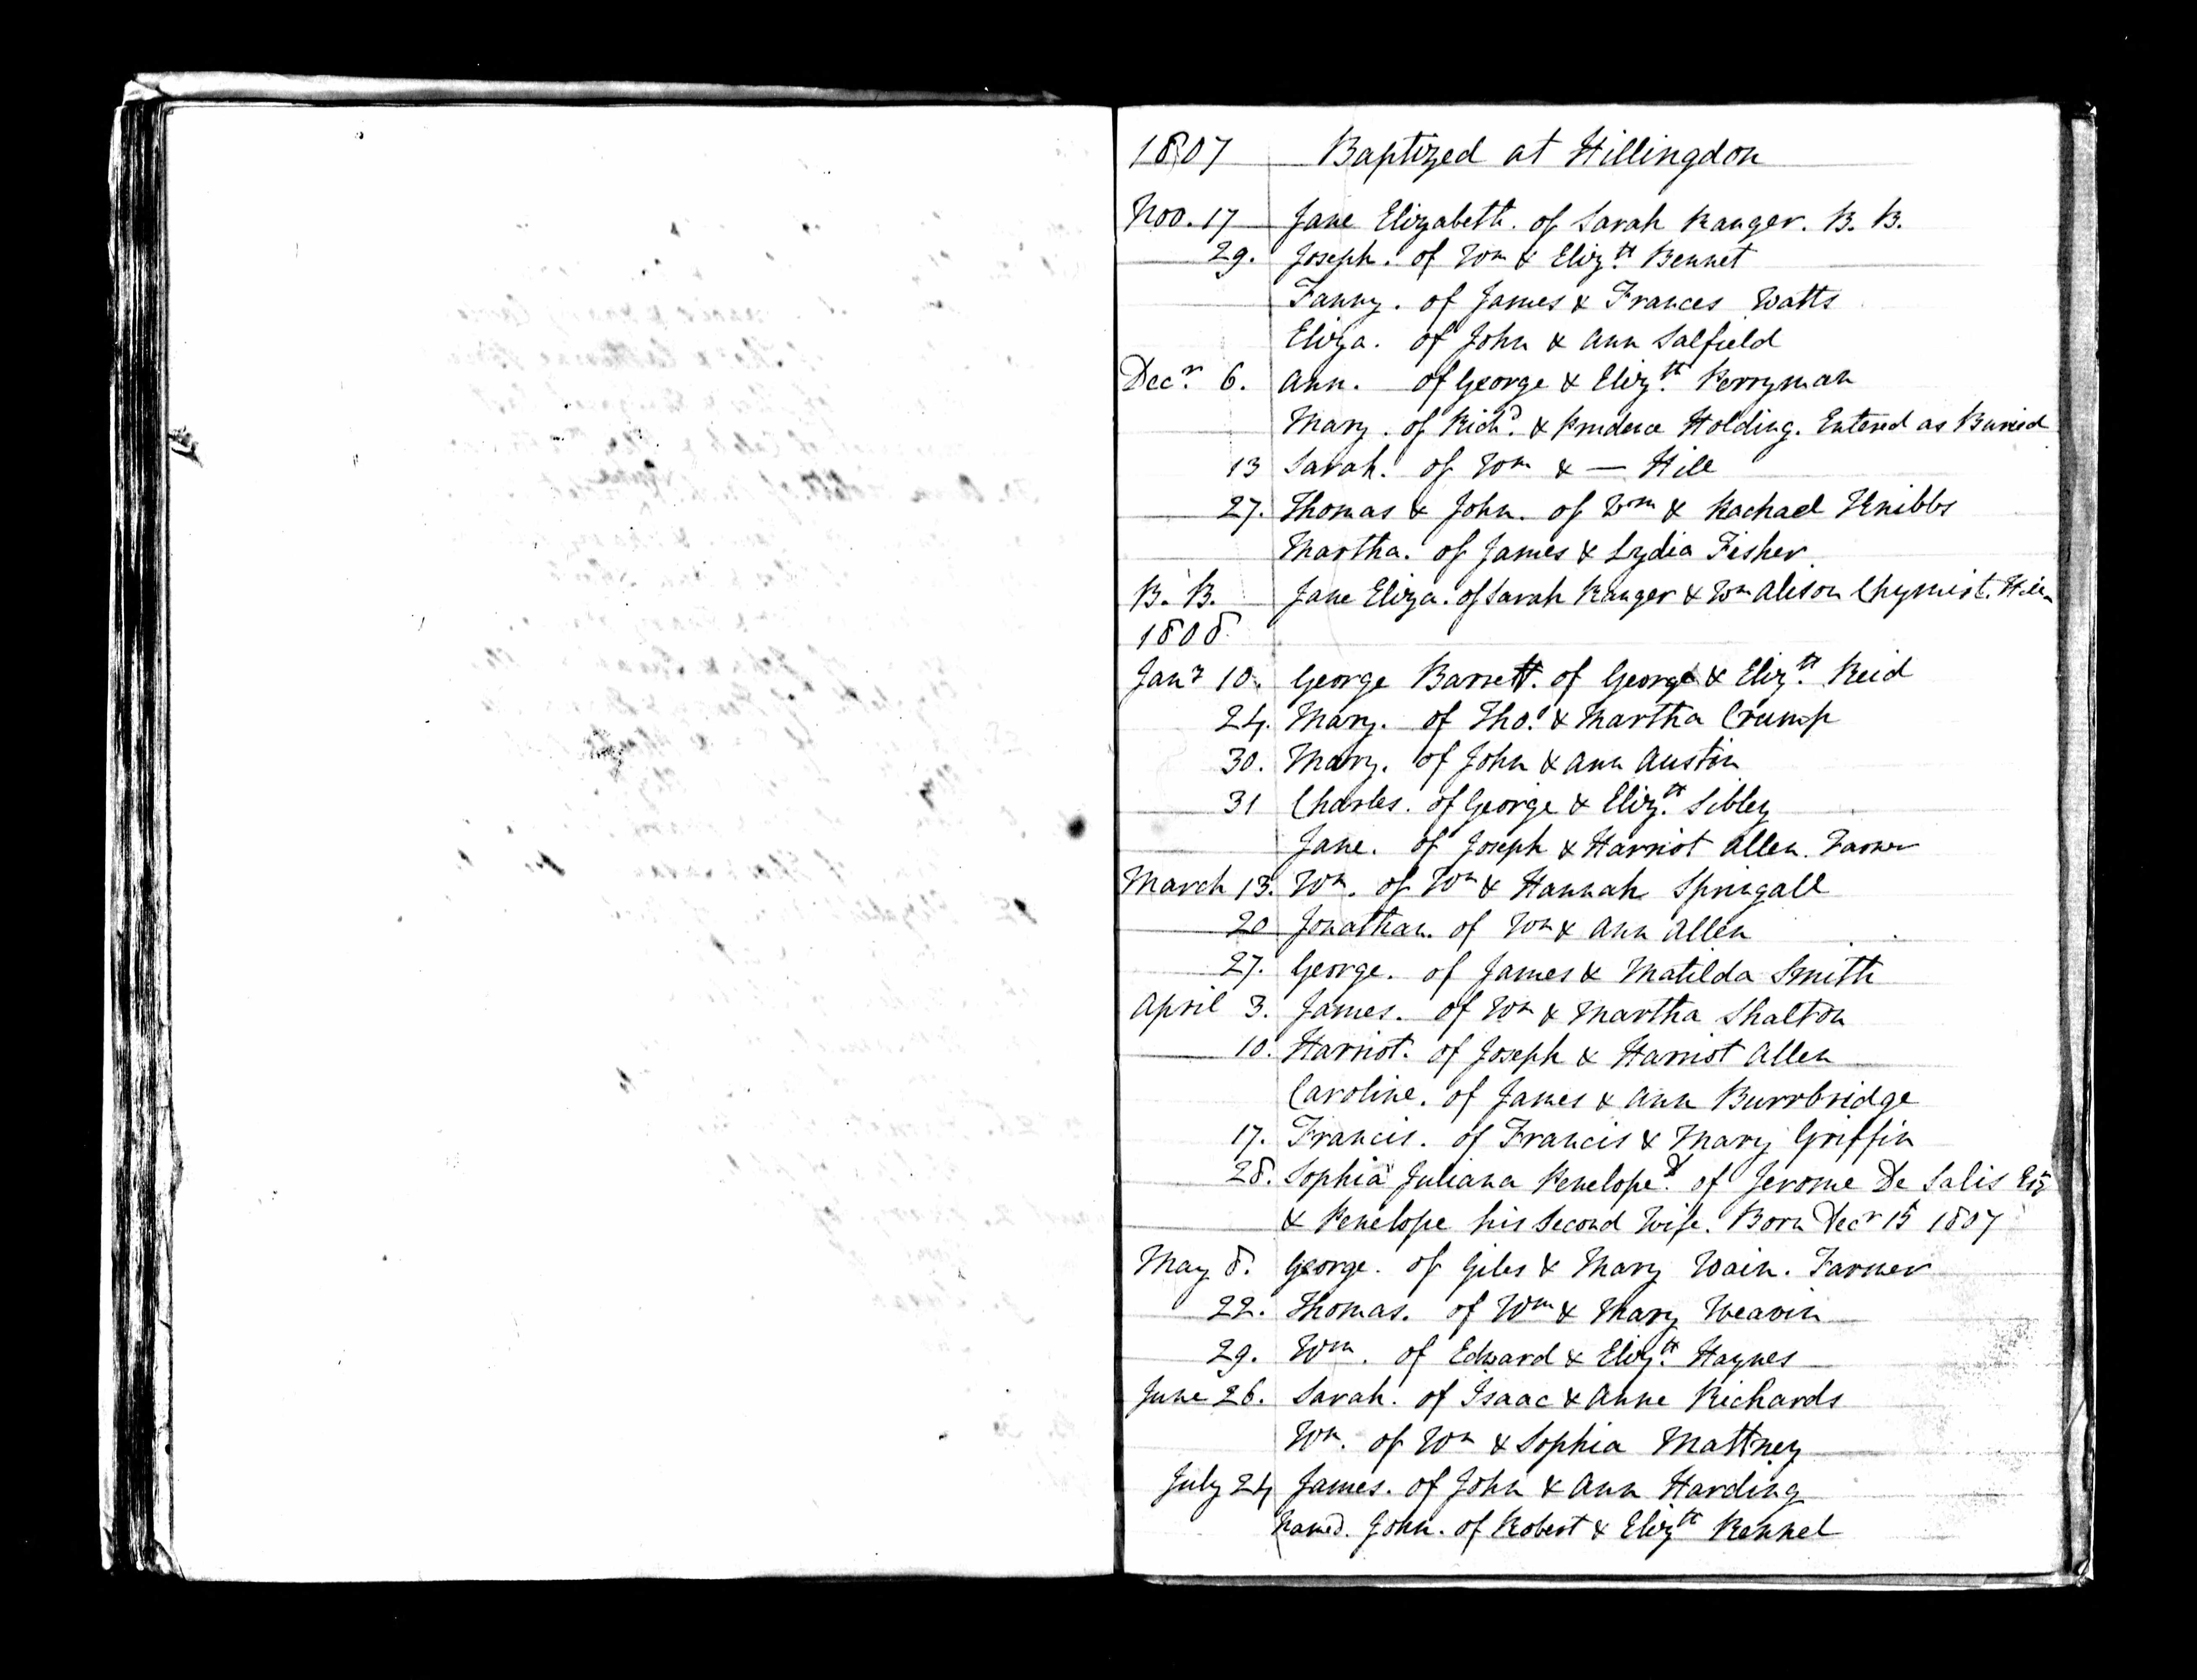 1807 Baptized at Hillingdon
Nov. 17 Jane Elizabeth. of Sarah Ranger. B. B.
29. Joseph. of Wm & Elizth Bennet
Fanny. of James & Frances Watts
Eliza. of John & Ann Salfield
Decr. 6. Ann. of George & Elizth Perryman
Mary. of Richd. & Prudence Holding. Entered as Buried
13 Sarah. of Wm & — Hill
27. Thomas & John. of Wm & Rachael Knibbs
Martha. of James & Lydia Fisher
B. B. Jane Eliza. of Sarah Ranger & Wm Alison Chymist.
1808
Jany 10. George Barrett. of George & Elizth Reid
24. Mary. of Tho.s & Martha Crump
30. Mary. of John & Ann Austin
31 Charles. of George & Elizth Sibley
Jane. of Joseph & Harriot Allen. Farmer
March 13. Wm. of Wm & Hannah Springall
20 Jonathan. of Wm & Ann Allen
27. George. of James & Matilda Smith
April 3. James. of Wm & Martha Shalton
10. Harriot. of Joseph & Harriot Allen
Caroline. of James & Ann Burrbridge
17. Francis. of Francis & Mary Griffin
28. Sophia Juliana Penelope. of Jerome De Salis Esq
& Penelope his Second Wife. Born Decr 15 1807
May 8. George. of Giles & Mary Wain. Farmer
22. Thomas. of Wm & Mary Weavin
29. Wm. of Edward & Elizth Haynes
June 26. Sarah. of Isaac & Anne Richards
Wm. of Wm & Sophia Mattney
July 24 James. of John & Ann Harding
Named. John. of Robert & Elizth Kennel